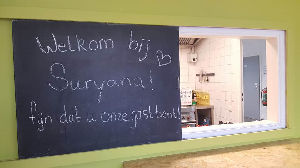 Welkom bij
Suryana!
Fijn dat u onze gast bent!